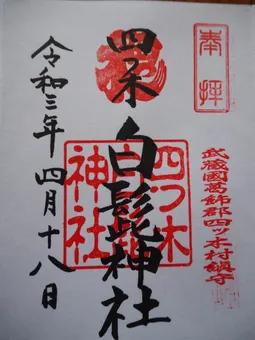 奉拝
武蔵國葛飾郡四ッ木村鎮守
四木 白髭神社
四つ木
白髭
神社
令和三年四月十八日